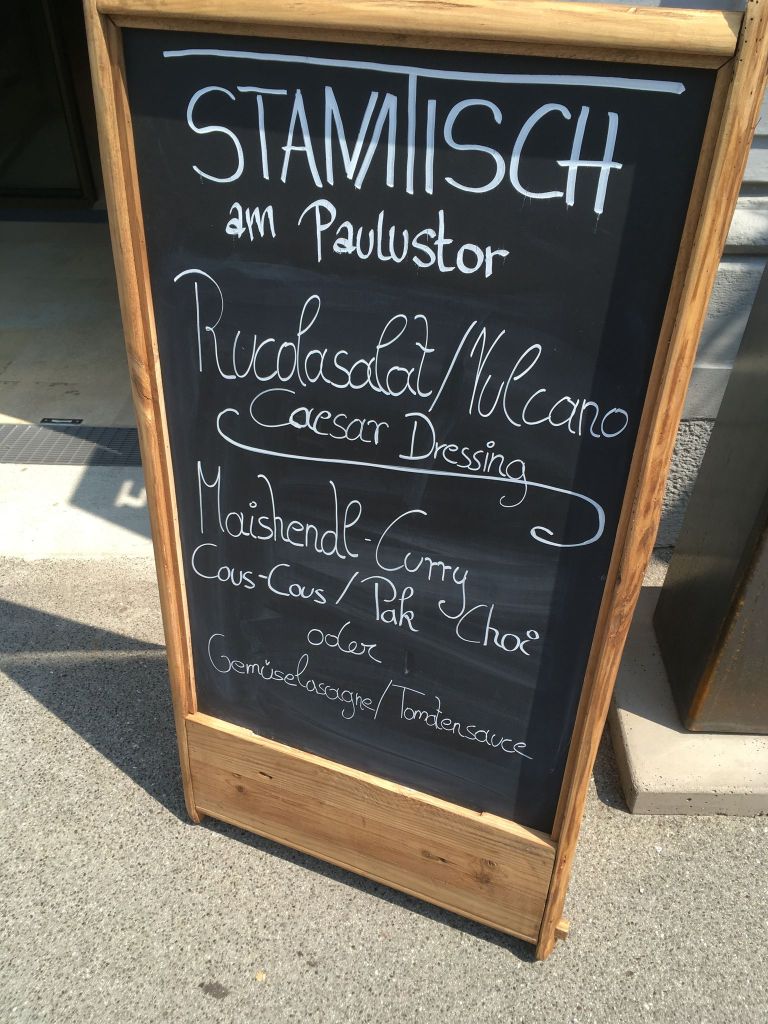 STAMMTISCH
am Paulustor
Rucolasalat/Vulcano
Caesar Dressing
Maishendl-Curry
Cous-Cous/Pak Choi
oder
Gemüselasagne/Tomatensauce